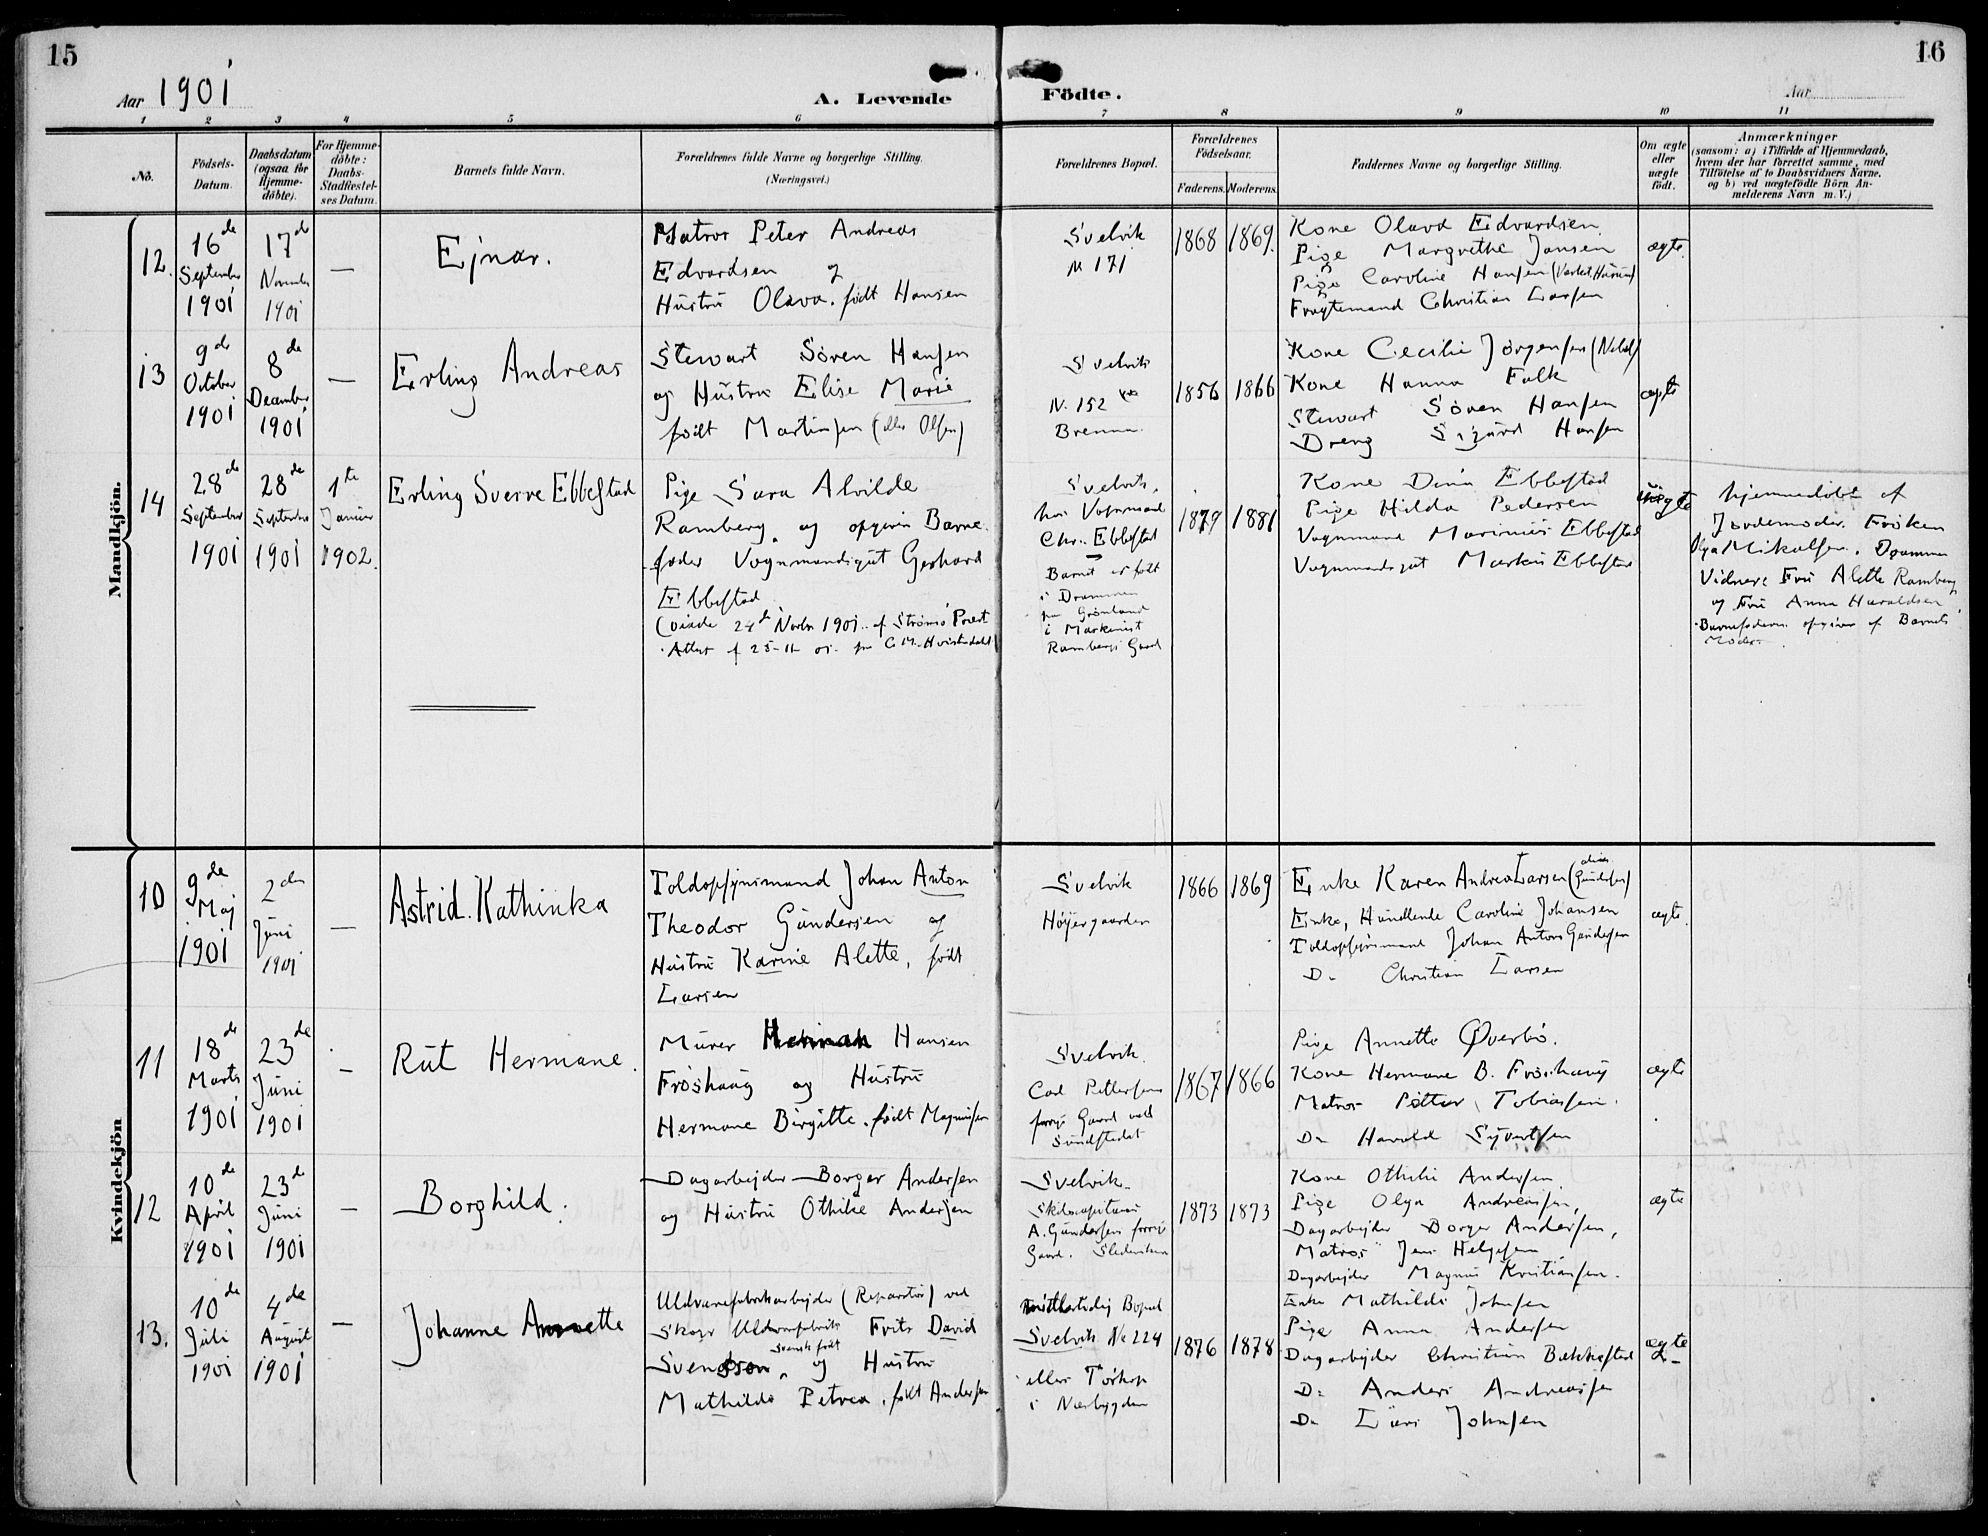 15
16
Aar 1901
A. Levende
Födte.
Aar
1 2 3 4 5 6 7 8 9 10 11
No.
Födsels-
Datum.
Daabsdatum
(ogsaa for
Hjemme-
döbte).
For Hjemme-
döbte:
Daabs-
Stadfæstel-
ses Datum.
Barnets fulde Navn.
Forældrenes fulde Navne og borgerlige Stilling.
(Næringsvei.)
Forældrenes Bopæl.
Forældrenes
Födselsaar.
Faderens. Moderens.
Faddernes Navne og borgerlige Stilling.
Om ægte
eller
uægte
födt.
Anmærkninger
(saasom: a) i Tilfælde af Hjemmedaab,
hvem der har forrettet samme, med
Tilföielse af to Daabsvidners Navne,
og b) ved uægtefödte Börn An-
melderens Navn m. V.)
Mandkjön.
12.
16de
September
1901
17de
November
1901
—
Ejnar.
Matros Peter Andreas
Edvardsen og
Hustru Olava. født Hansen
Svelvik
N 171
1868
1869.
Kone Olava Edvardsen
Pige Margrethe Jansen
Pige Caroline Hansen
Fragtemand Christian Larsen
ægte.
13
9de
October
1901
8de
December
1901
—
Erling Andreas
Stewart Søren Hansen
og Hustru Elise Marie
født Martinsen (eller Olsen)
Svelvik
N. 152
Brenna.
1856
1866
Kone Cecilie Jörgensen
Kone Hanna Falk
Stewart Søren Hansen
Dreng Sigurd Hansen
ægte
14
28de
September
1901
28de
September
1901
1te
Januar
1902.
Erling Sverre Ebbestad
Pige Sara Alvilde
Ramberg, og opgiven Barne-
fader Vognmandsgut Gerhard
Ebbestad
(viede 24de Novbr 1901. af Strømsø Præst
Attest af 25-11 01. fra
Svelvik,
hos Vognmand
Chr. Ebbestad
Barnet er født
i Drammen
paa Grønland
i Maskinist
Rambergs Gaard
1879
1881
Kone Dina Ebbestad
Pige Hilda Pedersen
Vognmand Marinius Ebbestad
Vognmandsgut Markus Ebbestad
uægte
hjemmedøbt af
Jordemoder Frøken
Olga Mikalsen. Drammen
Vidner: Fru Alette Ramberg
og Fru Anna Haraldsen
Barnefaderen opgiven af Barnets
Moder.
Kvindekjön
10
9de
Maj
1901
2den
Juni
1901
—
Astrid. Kathinka
Toldopsynsmand Johan Anton
Theodor Gundersen og
Hustru Karine Alette, født
Larsen
Svelvik
Höyergaarden
1866
1869
Enke Karen Andrea Larsen
Enke, Handlende Caroline Johansen
Toldopsynsmand Johan Anton Gundersen
Do Christian Larsen
ægte.
11
18de
Marts
1901
23de
Juni
1901
—
Rut Hermane.
Murer Hansen
Fröshaug og Hustru
Hermane Birgitte. født Magnusen
Svelvik.
Carl Pettersens
forrige Gaard ved
Sundstedet
1867
1866
Pige Annette Øverbö.
Kone Hermane B. Fröshaug
Matros Petter Tobiassen.
Do Harald Syvertsen
ægte
12
10de
April
1901
23de
Juni
1901
—
Borghild.
Dagarbejder Borger Andersen
og Hustru Othilie Andersen
Svelvik.
Skibscaptain
A. Gundersens forrige
Gaard.
1873
1873
Kone Othilie Andersen
Pige Olga Andreassen,
Dagarbejder Borger Andersen,
Matros Jens Helgesen
Dagarbejder Magnus Kristiansen.
ægte
13.
10de
Juli
1901
4de
August
1901
—
Johanne Annette
Uldvarefabrikarbejder (Reparatør) ved
Skoger Uldvarefabrik Frits David
Svensk født
Svensson, og Hustru
Mathilde Petrea. født Andersen
midlertidig Bopæl
Svelvik No 224
ellers Torkop
i Nesbygden
1876
1878
Enke Mathilde Johnsen
Pige Anna Andersen
Dagarbejder Christian Bekkestad
Do Anders Andreassen
Do Lars Johnsen
ægte